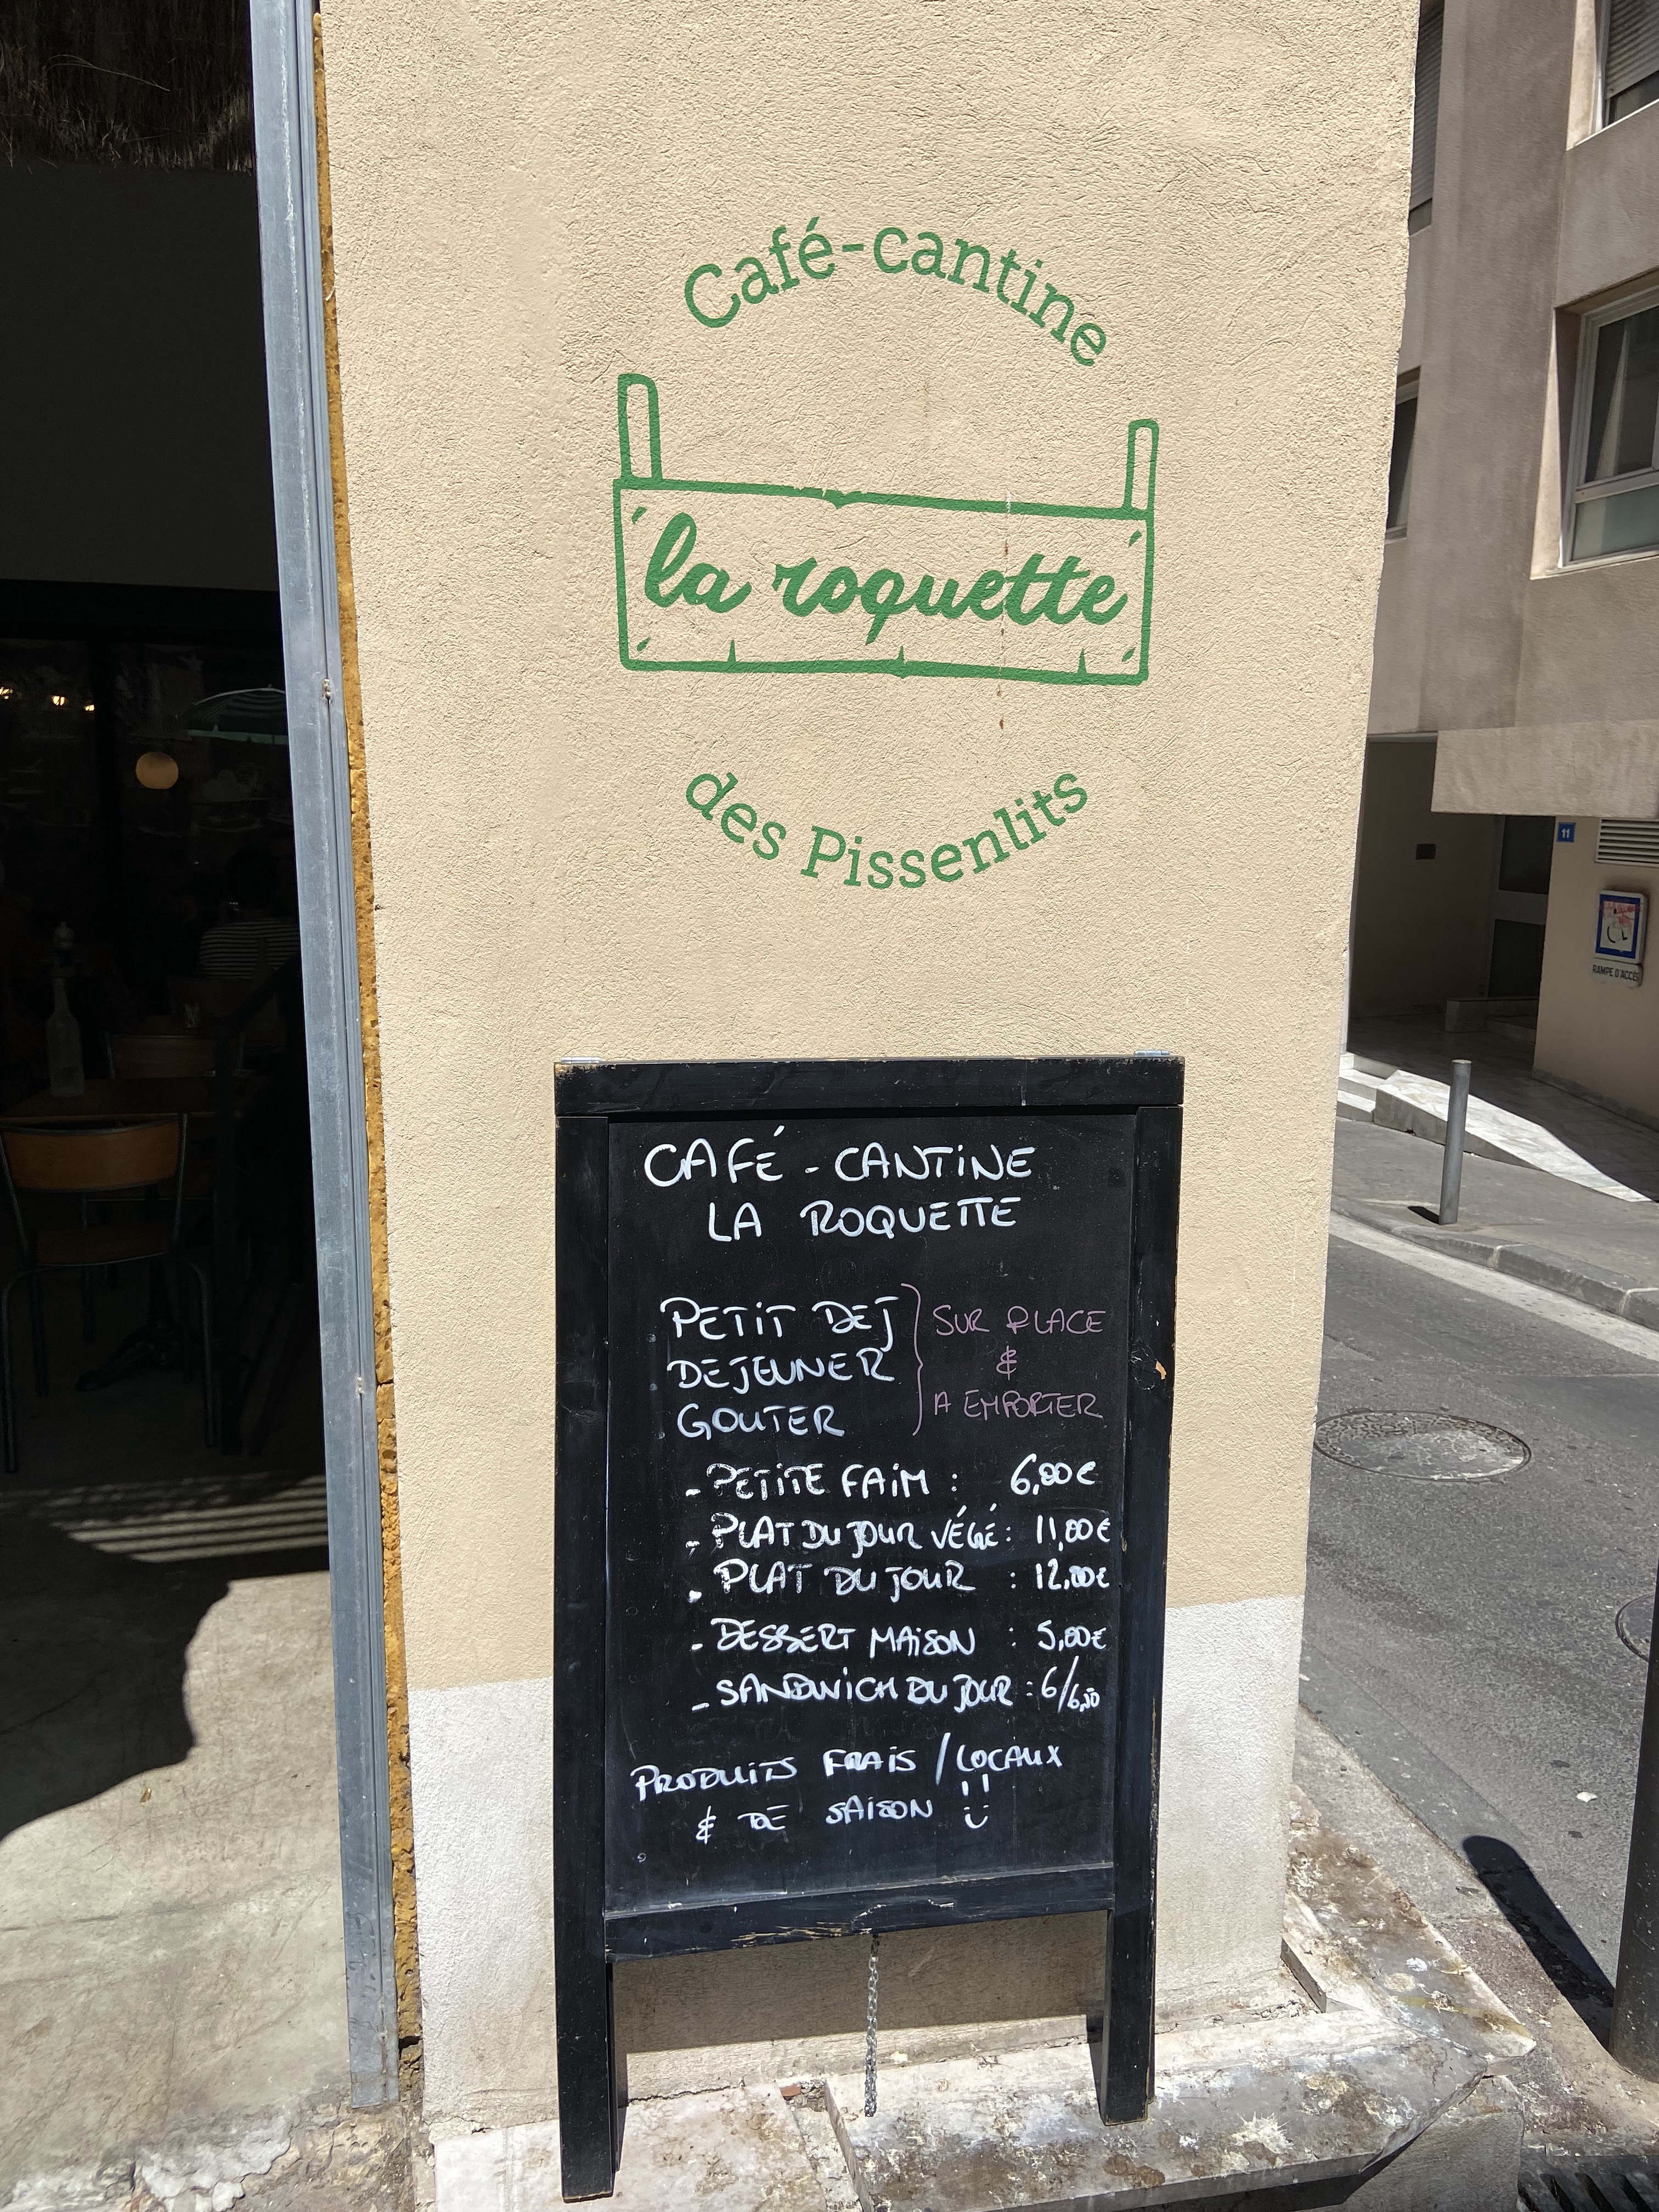 Café-cantine
la roquette
des Pissenlits
CAFÉ - CANTINE
LA ROQUETTE
PETIT DEJ
DEJEUNER
GOUTER
SUR PLACE
&
A EMPORTER
- PETITE FAIM : 6,00€
- PLAT DU JOUR VÉGÉ : 11,00€
- PLAT DU JOUR : 12,00€
- DESSERT MAISON : 5,00€
- SANDWICH DU JOUR : 6/6,50
PRODUITS FRAIS / LOCAUX
& DE SAISON !!
11
RAMPE D'ACCÈS